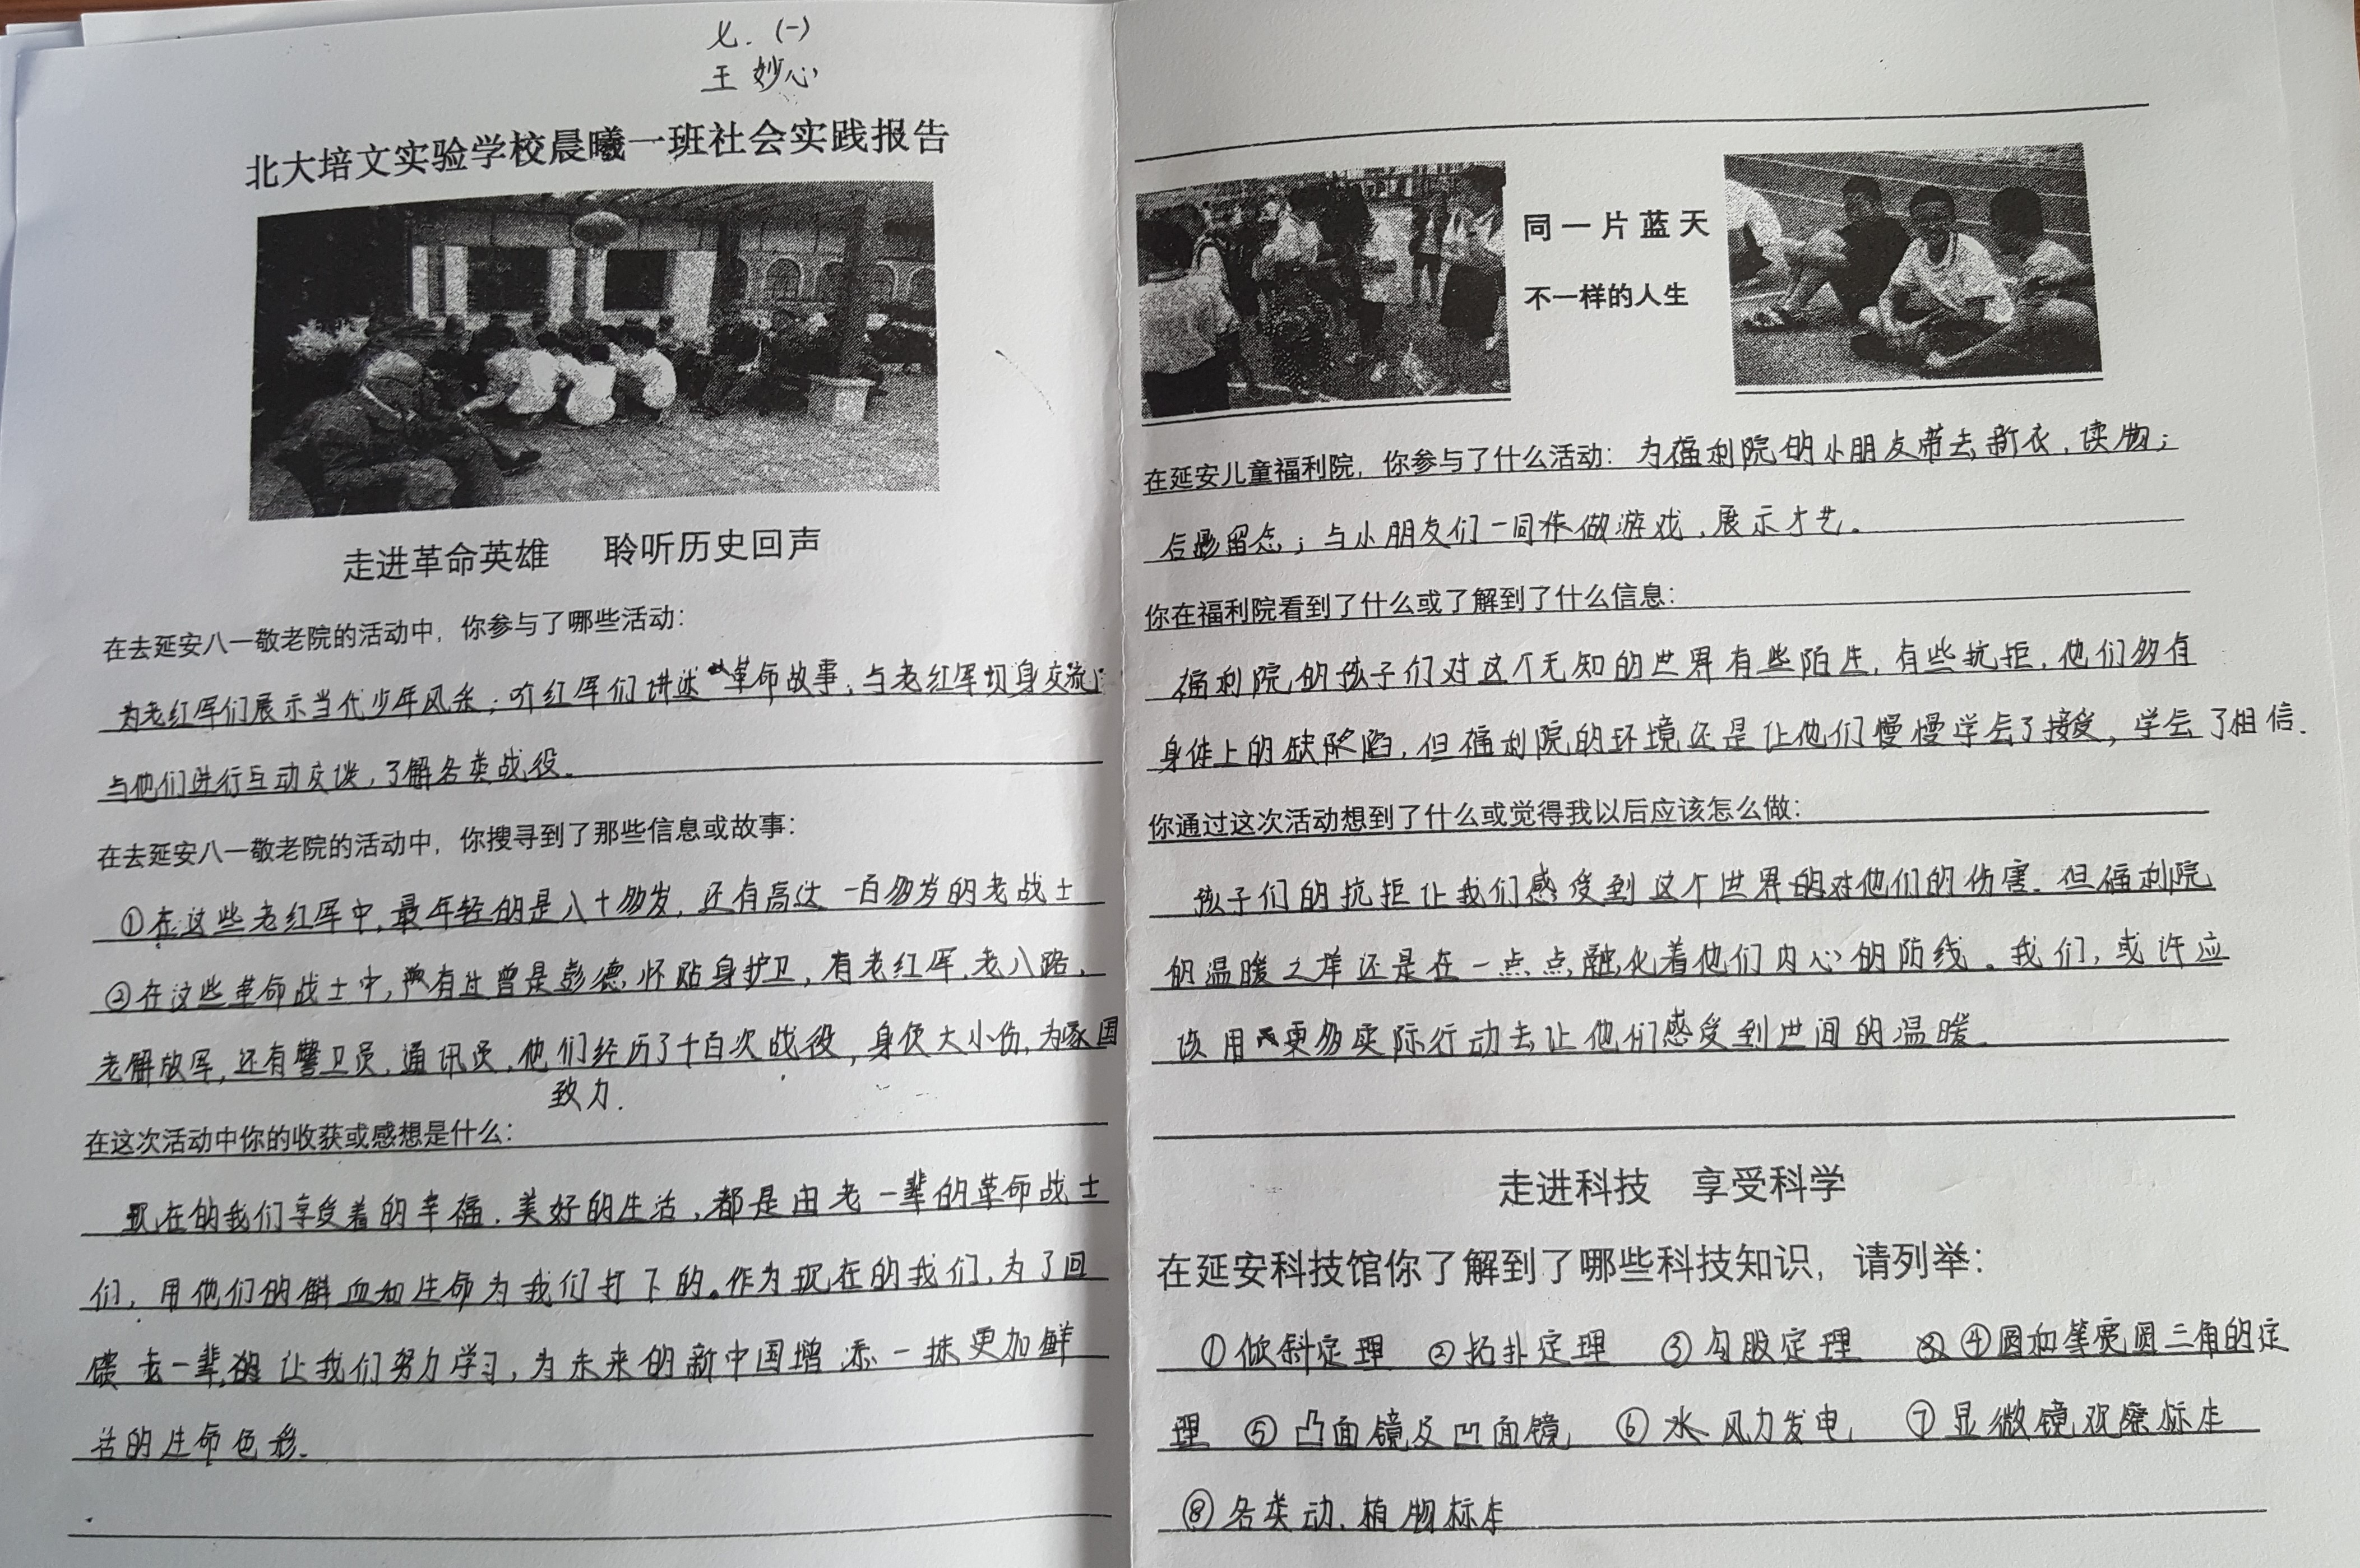 七.(一)
王妙心
北大培文实验学校晨曦一班社会实践报告
走进革命英雄 聆听历史回声
在去延安八一敬老院的活动中，你参与了哪些活动：
为老红军们展示当代少年风采；听红军们讲述革命故事；与老红军切身交流；
与他们进行互动交谈，了解各类战役。
在去延安八一敬老院的活动中，你搜寻到了那些信息或故事：
①在这些老红军中，最年轻的是八十多岁，还有高达一百多岁的老战士
②在这些革命战士中，有过曾是彭德怀贴身护卫，有老红军，老八路，
老解放军，还有警卫员，通讯员，他们经历了十百次战役，身使大小伤，为家国
致力.
在这次活动中你的收获或感想是什么：
现在的我们享受着的幸福、美好的生活，都是由老一辈的革命战士
们，用他们的鲜血和生命为我们打下的。作为现在的我们，为了回
馈老一辈，让我们努力学习，为未来的新中国增添一抹更加鲜
活的生命色彩.
同一片蓝天
不一样的人生
在延安儿童福利院，你参与了什么活动：为福利院的小朋友带去新衣，读物；
合影留念；与小朋友们一同做游戏，展示才艺。
你在福利院看到了什么或了解到了什么信息：
福利院的孩子们对这个无知的世界有些陌生，有些抗拒，他们多有
身体上的缺陷，但福利院的环境还是让他们慢慢学会了接受，学会了相信.
你通过这次活动想到了什么或觉得我以后应该怎么做：
孩子们的抗拒让我们感受到这个世界对他们的伤害.但福利院
的温暖之举还是在一点点融化着他们内心的防线。我们，或许应
该用更多实际行动去让他们感受到世间的温暖.
走进科技 享受科学
在延安科技馆你了解到了哪些科技知识，请列举：
①倾斜定理 ②拓扑定理 ③勾股定理 ④圆和等宽圆三角的定
理 ⑤凸面镜及凹面镜 ⑥水风力发电 ⑦显微镜观察标本
⑧各类动、植物标本